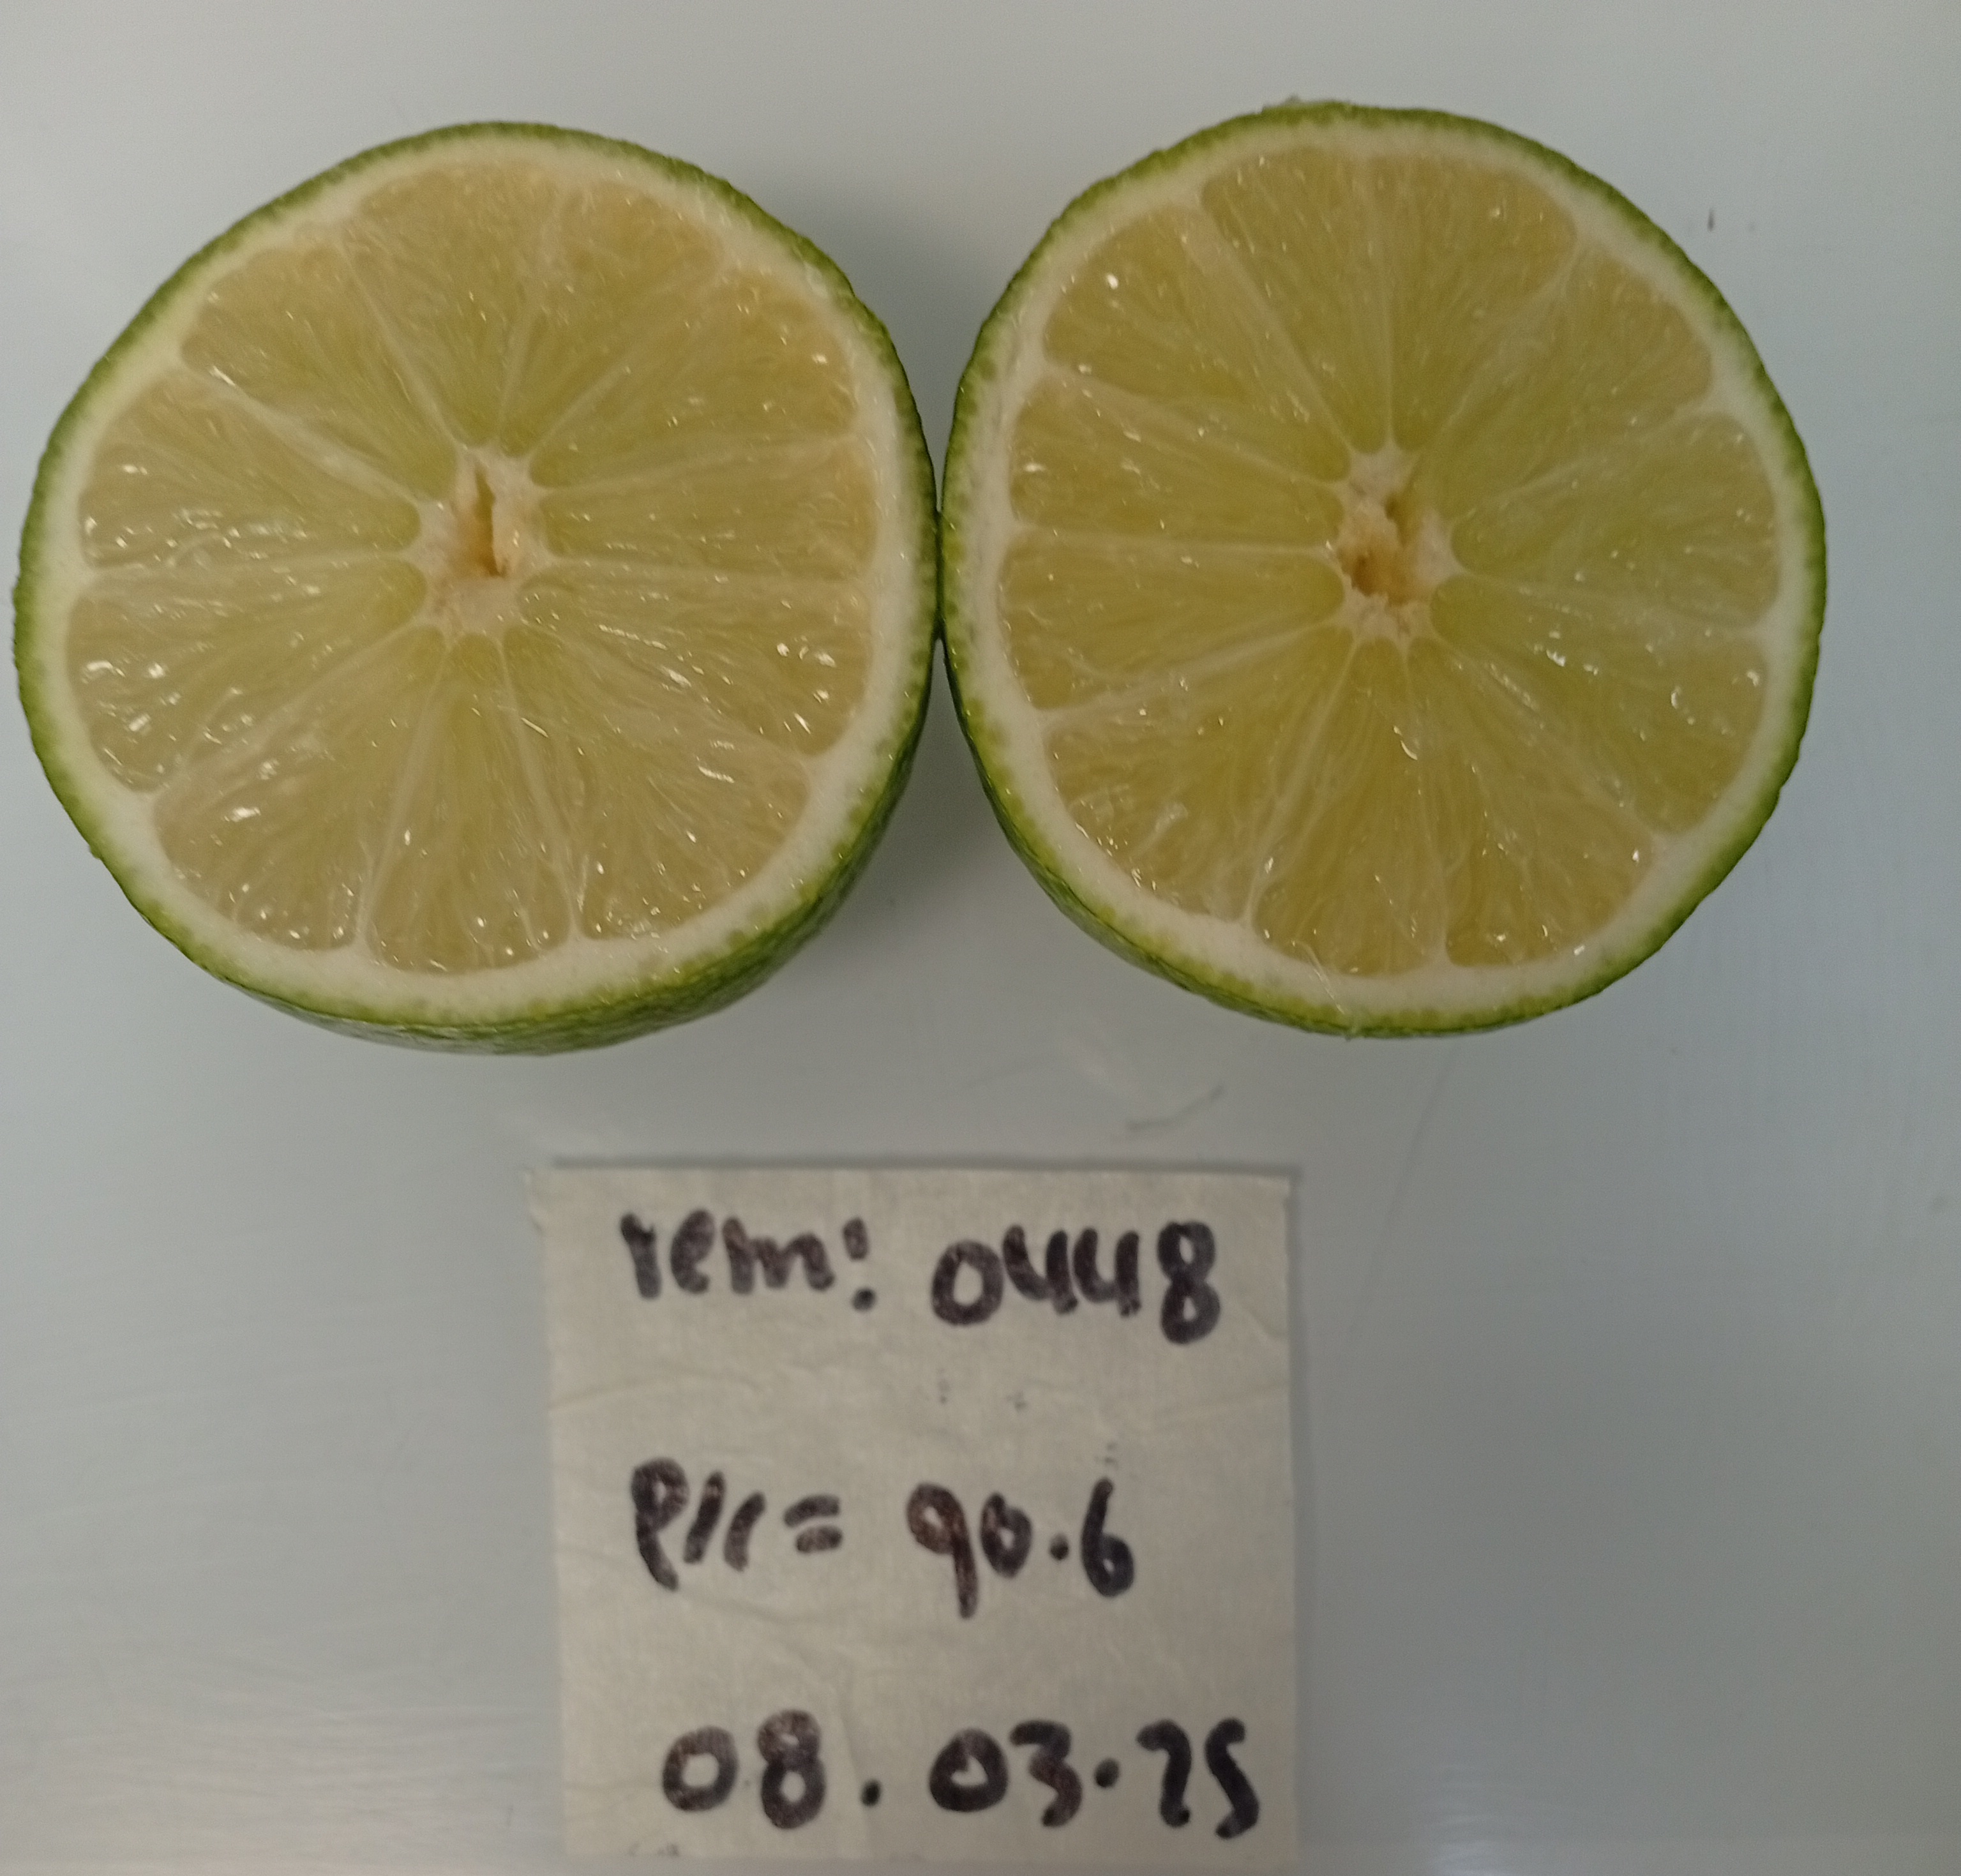 rem: 0448
P/r = 90.6
08.03.25